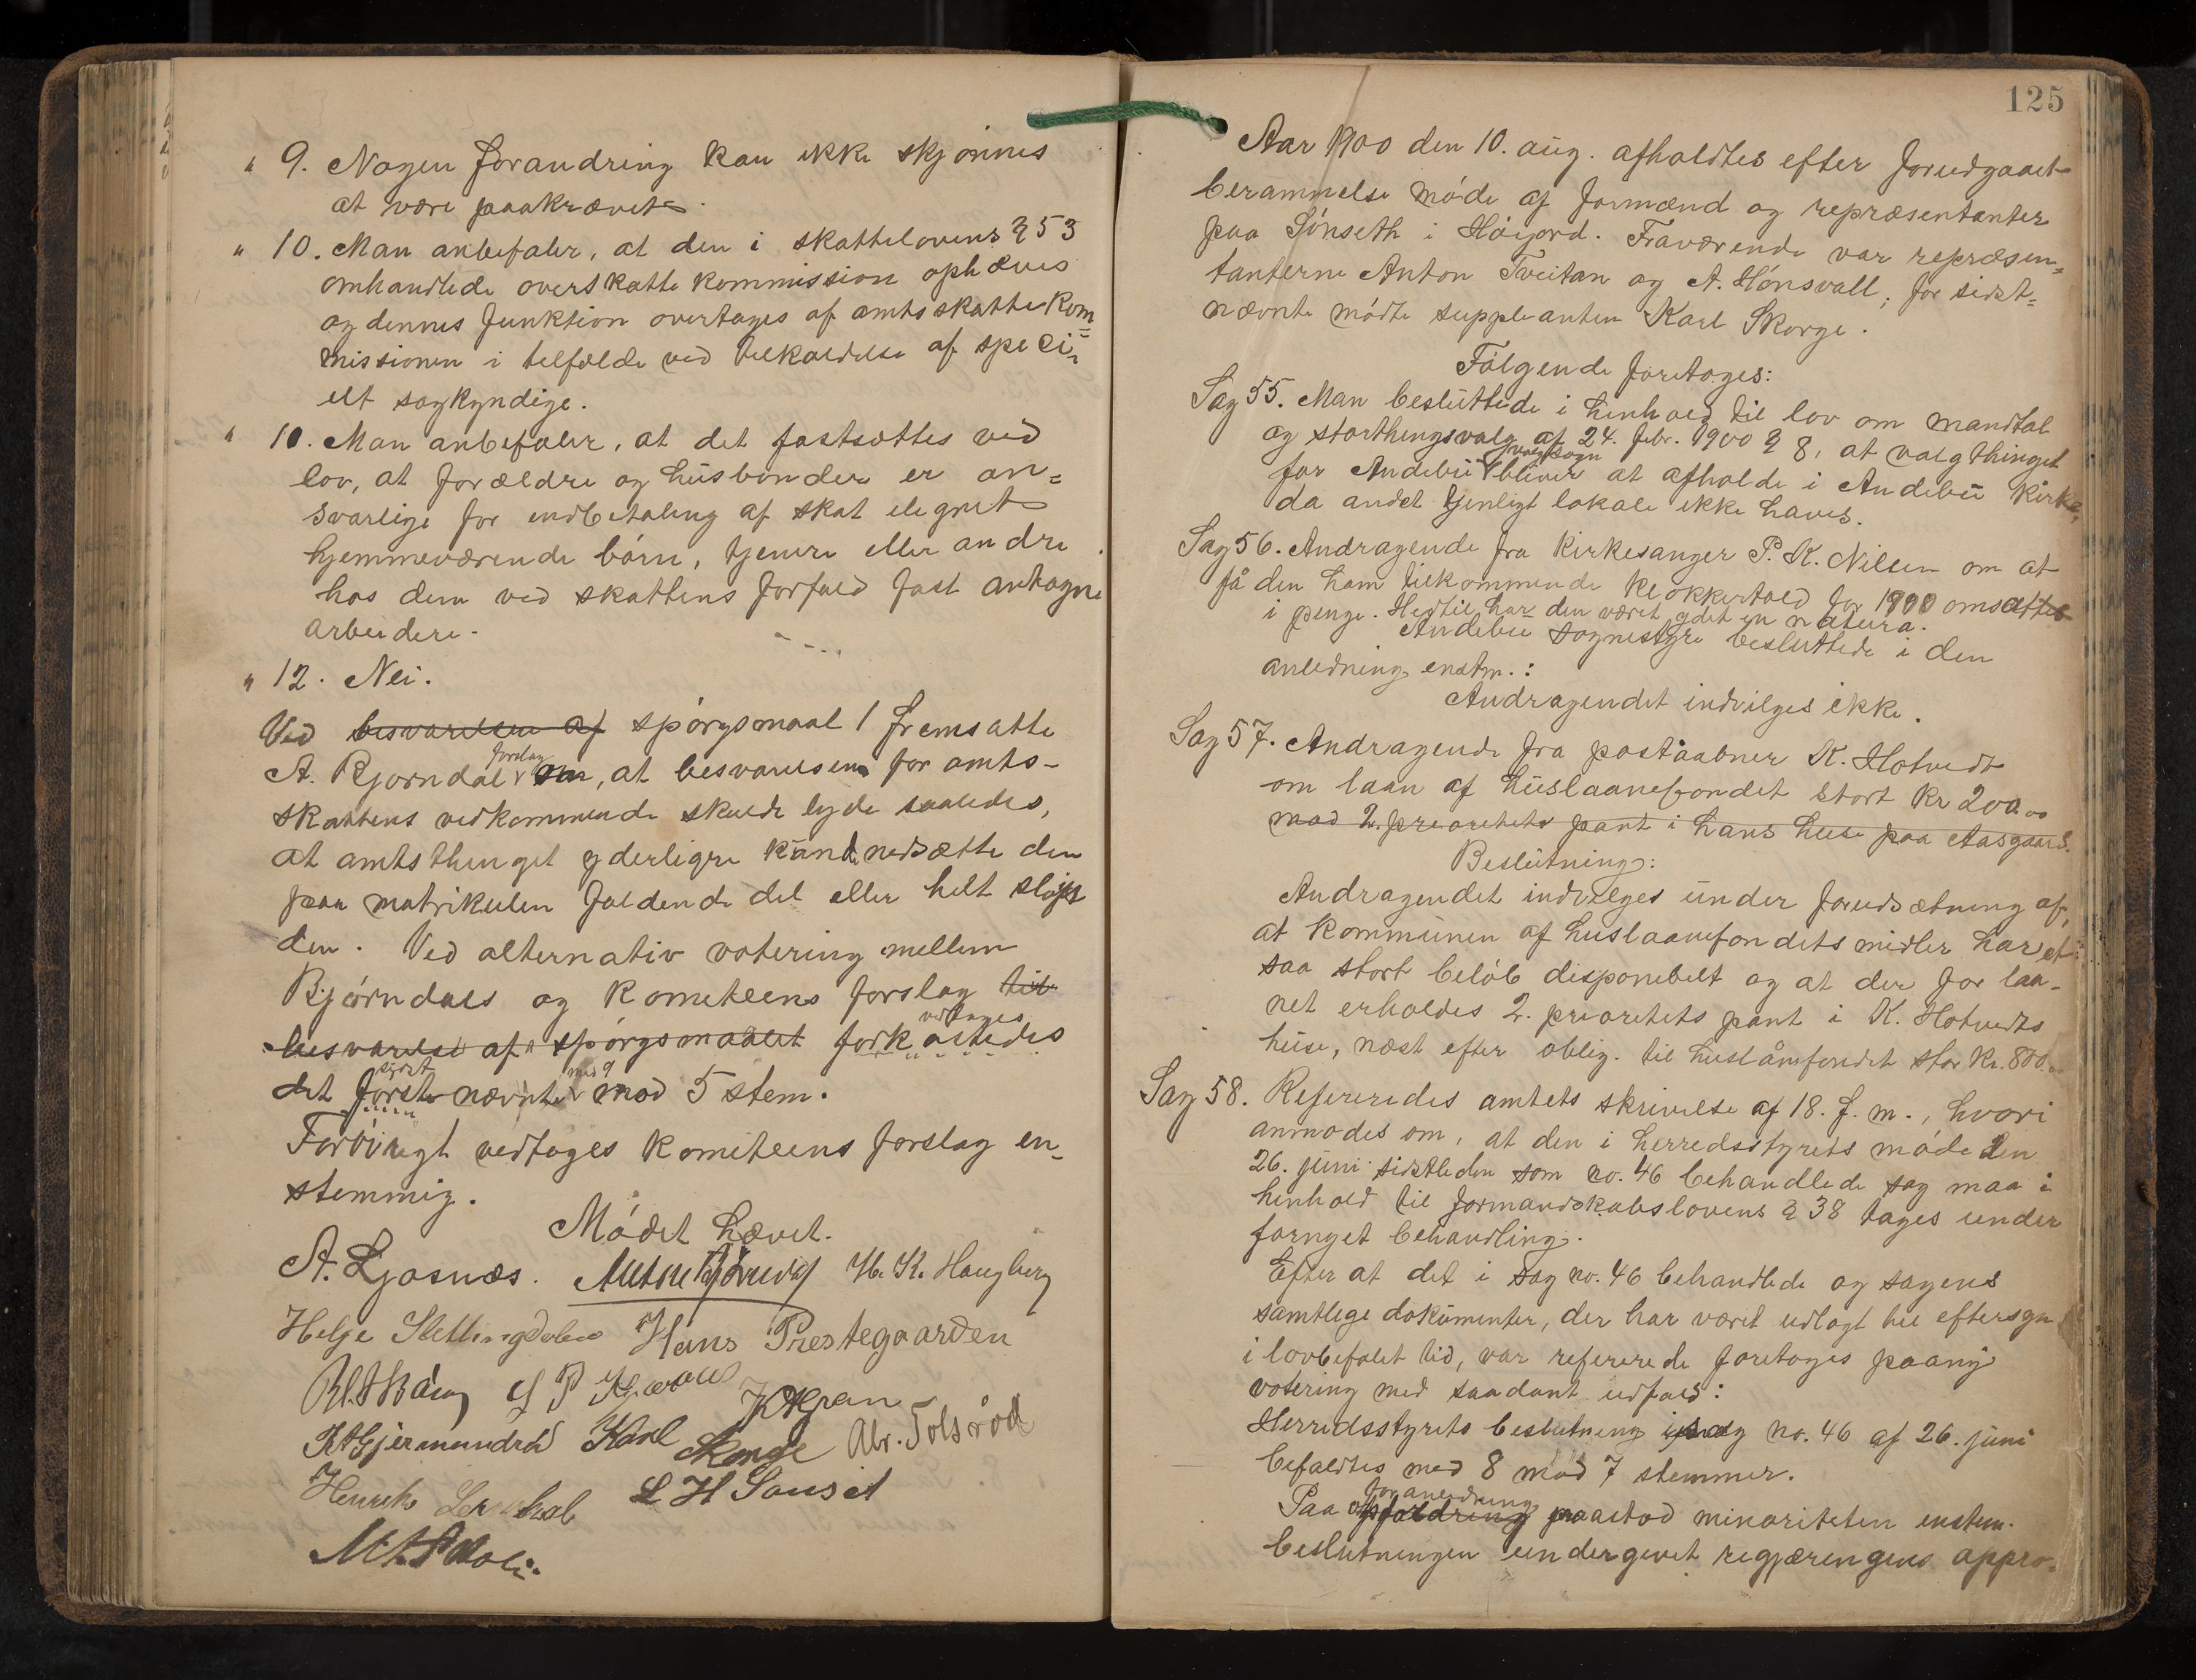 " 9. Nogen forandring kan ikke skjönnes
at være paakrævet.
" 10. Man anbefaler, at den i skattelovens § 53
omhandlede overskattekommission ophæves
og dennes funktion overtages af amtsskattekom=
missionen i telfælde ved telkaldelse af speci=
elt sagkyndige.
" 10. Man anbefaler, at det fastsættes ved
lov, at forældre og husbonder er an=
svarlige for indbetaling af skat elegnet
hjemmeværende börn, tjenere eller andre
hos dem ved skattens forfald fast antagne
arbeidere.
" 12. Nei.
Ved besvarelsen af spörgsmaal 1 fremsatte
forslag
A. Bjorndal om, at besvarelsen for amts-
skattens vedkommende skulde lyde saaledes,
at amtsthinget yderligere kand nedsætte den
paa matrikulen faldende del eller helt slöife
den. Ved alternativ votering mellem
Björndals og Komiteens forslag til
vedtoges
besvarelse af spörgsmaalet forkastedes
sidst med 9
det förstnævnte mod 5 stem.
Forövrigt vedtoges komiteens forslag en=
stemmig.
Mödet hævet.
A. Gjosnæs. H. K. Haugberg
Helje Hans Prestegaarden
Karl Skorge Abr. Tolsröd
Henrik L H Sauset
125
Aar 1900 den 10. aug. afholdtes efter forudgaaet
berammelse möde af formænd og repræsentanter
paa Sönseth i Höijord. Fraværende var repræsen=
tanterne Anton Tveitan og A. Hönsvall; for sidst=
nævnte mödte suppleanten Karl Skorge.
Fölgende foretoges:
Sag 55. Man besluttede i henhold til lov om mandtal
og storthingsvalg af 24. febr. 1900 § 8, at valgthinget
valgsogn
for Andebu bliver at afholde i Andebu kirke,
da andet tjenligt lokale ikke haves.
Sag 56. Andragende fra kirkesanger P. K. Nilsen om at
få den ham tilkommende klokkertold for 1900 omsattes
i penge. Hertil har den været ydet in natura.
Andebu sognestyre besluttede i den
anledning enstm.:
Andragendet indvilges ikke.
Sag 57. Andragende fra postaabner K. Hotvedt
om laan af huslaanefondet stort kr 200.00
mod 2. prioretets pant i hans huse paa Aasgaard.
Beslutning:
Andragendet indvilges under forudsætning af,
at kommunen af huslaanefondets midler har et
saa stort belöb disponibelt og at der for laa-
net erholdes 2. prioretets pant i K. Hotvedts
huse, næst efter oblig. til huslånsfondet stor kr. 800.00
Sag 58. Refereredes amtets skrivelse af 18. f. m., hvori
anmodes om, at den i herredsstyrets möde den
26. juni sidstleden som no. 46 behandlede sag maa i
henhold til formandskabslovens § 38 tages under
fornyet behandling.
Efter at det i sag no. 46 behandlede og sagens
samtlege dokumenter, der har været udlagt til eftersyn
i lovbefalet tid, var refererede foretoges paany
votering med saadant udfald:
Herredsstyrets beslutning i sag no. 46 af 26. juni
befaldtes med 8 mod 7 stemmer.
foranledning
Paa opfordring paastod minoriteten enstem.
beslutningen undergivet regjæringens appro=